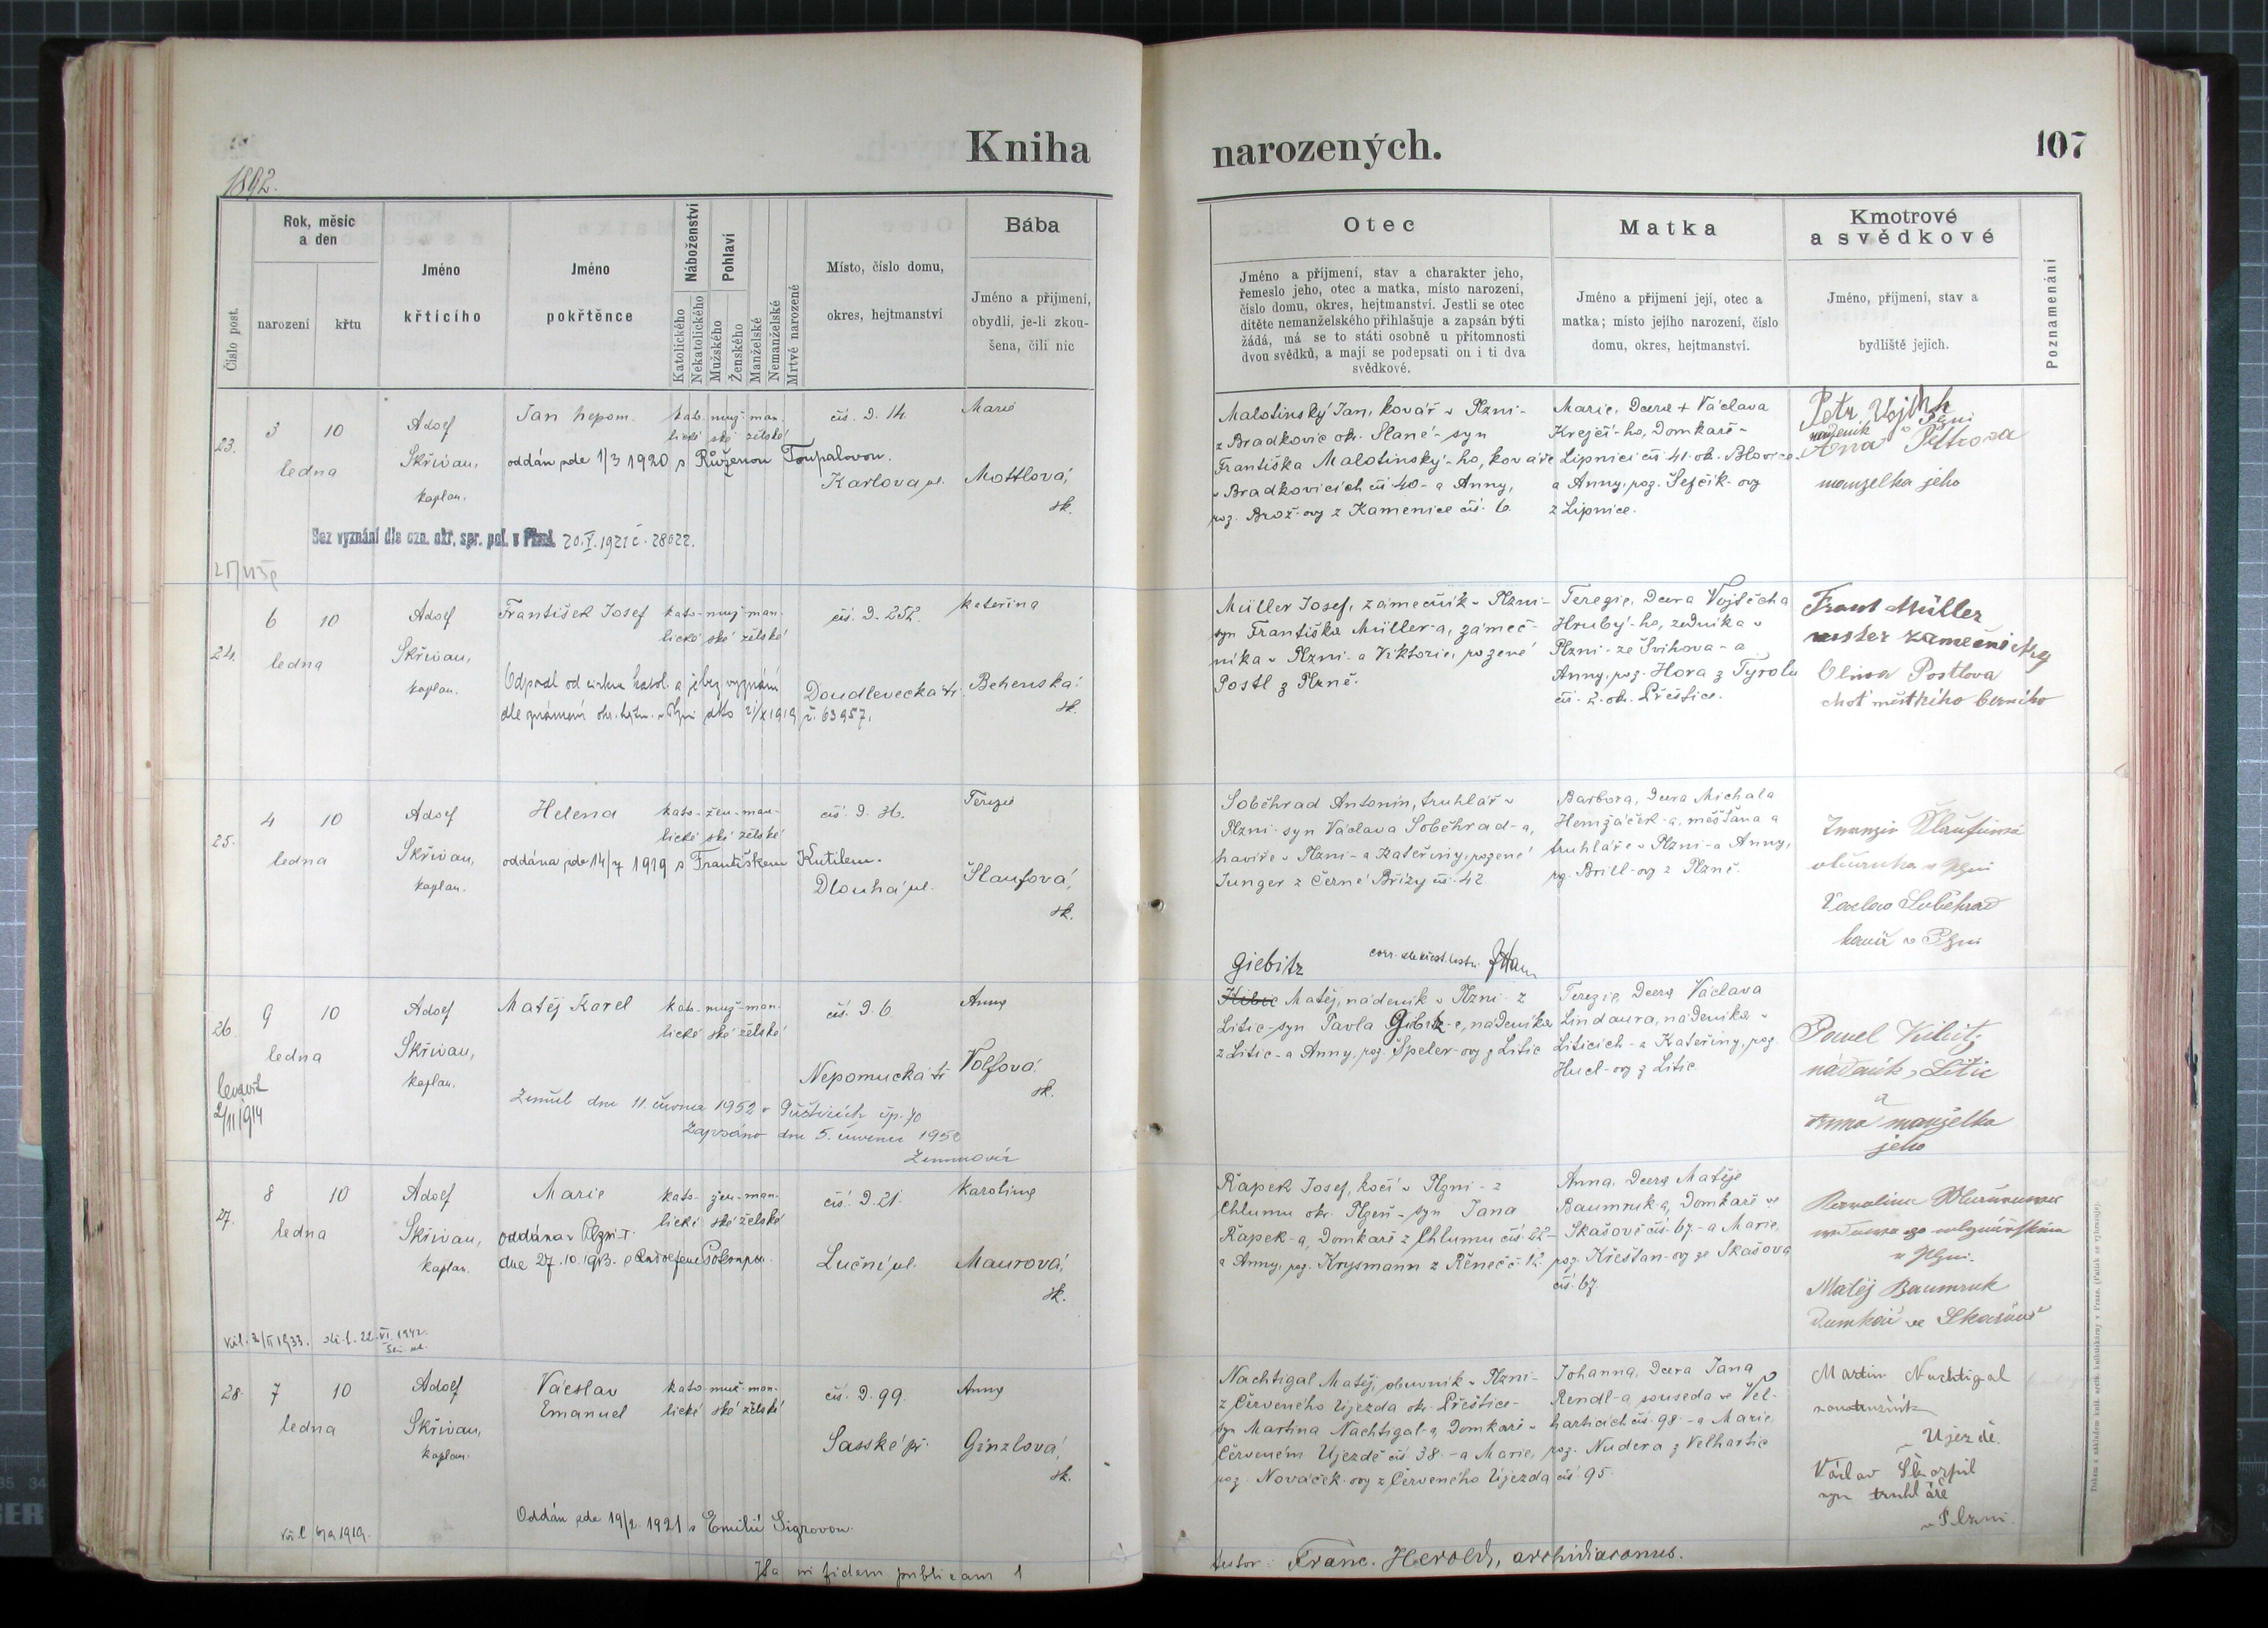 Kniha
narozených.
107
1892.
Číslo post.
Rok, měsíc
a den
narození
křtu
Jméno
křtícího
Jméno
pokřtěnce
Náboženství
Katolického
Nekatolického
Pohlaví
Mužského
Ženského
Manželské
Nemanželské
Mrtvě narozené
Místo, číslo domu,
okres, hejtmanství
Bába
Jméno a přijmení,
obydlí, je-li zkou-
šena, čili nic
Otec
Jméno a příjmení, stav a charakter jeho,
řemeslo jeho, otec a matka, místo narození,
číslo domu, okres, hejtmanství. Jestli se otec
dítěte nemanželského přihlašuje a zapsán býti
žádá, má se to státi osobně u přítomnosti
dvou svědků, a mají se podepsati on i ti dva
svědkové.
Matka
Jméno a přijmení její, otec a
matka; místo jejího narození, číslo
domu, okres, hejtmanství.
Kmotrové
a svědkové
Jméno, příjmení, stav a
bydliště jejich.
Poznamenání
23.
3 10
ledna
Adolf
Skřivan,
kaplan.
Jan Nepom.
kato- muž- man-
lické ské želské
oddán zde 1/3 1920 s Růženou Toupalovou.
čís. D. 14.
Karlova ul.
Marie
Mottlová,
zk.
Bez vyznání dle ozn. okr. spr. pol. v Plzni 20.V.1921 č. 28022.
Malotinský Jan, kovář v Plzni-
z Bradkovic okr. Slané- syn
Františka Malotinský-ho, kováře
v Bradkovicích čís 40- a Anny,
roz. Brož-ovy z Kamenice čís. 6.
Marie, Dcera + Václava
Krejčí-ho, Domkaře-
Lipnici čís 41. ok. Blovice-
a Anny, roz. Šefčík-ovy
z Lipnice.
Petr Vojtěch
nádeník v Plzni
Anna Petrova
manželka jeho
24.
6 10
ledna
Adolf
Skřivan,
kaplan.
František Josef
kato- muž- man-
lické ské želské
čís. D. 252.
Odpadl od církve katol. a je bez vyznání
dle známení okr. hejtm. v Plzni dto 21/X 1919 č. 63957.
Doudlevecká tř.
Kateřina
Behenská,
zk.
Müller Josef, zámečník v Plzni-
syn Františka Müller-a, zámeč-
níka v Plzni- a Viktorie, rozené
Postl z Plzně.
Terezie, Dcera Vojtěcha
Hrubý-ho, zedníka v
Plzni- ze Švihova- a
Anny, roz. Hora z Tyrolu
čís. 2. ok. Přeštice.
Frant Müller
mister zamečnický
Postlova
choť městkího berního
25.
4 10
ledna
Adolf
Skřivan,
kaplan.
Helena
kato- žen- man-
lické ské želské
oddána zde 14/7 1919 s Františkem Kutilem.
čís. D. 36.
Dlouhá ul.
Terezie
Šlaufová,
zk.
Soběhrad Antonín, truhlář v
Plzni- syn Václava Soběhrad-a,
havíře v Plzni- a Kateřiny, rozené
Junger z Černé Břízy čís. 42.
Barbora, Dcera Michala
Heinzáček-a, měšťana a
truhláře v Plzni- a Anny,
roz. Brill-ovy z Plzně.
v Plzni
Václav Soběhrad
havíř v Plzni
26.
9 10
ledna
Adolf
Skřivan,
kaplan.
Matěj Karel
kato- muž- man-
lické ské želské
čís. D. 6.
Nepomucká tř.
Anna
Volfová,
zk.
2/11/914
Zemřel dne 11. června 1952 v čp. 70
Zapsáno dne 5. července 1952
Giebitz
Matěj, nádeník v Plzni- z
Litic- syn Pavla Giebitz-e, nádeníka
z Litic- a Anny, roz. Špeler-ovy z Litic
Terezie, Dcera Václava
Lindaura, nádeníka v
Liticích- a Kateřiny, roz.
Hucl-ovy z Litic
Pavel
nádeník z Litic
a
Anna manželka
jeho
27.
8 10
ledna
Adolf
Skřivan,
kaplan.
Marie
kato- žen- man-
lické ské želské
oddána v Plzni-I.
dne 27.10.1913. s
čís. D. 21.
Luční ul.
Karolina
Maurová,
zk.
Řapek Josef, kočí v Plzni- z
Chlumu okr. Plzeň- syn Jana
Řapek-a, Domkaře z Chlumu čís. 22-
a Anny, roz. Krysmann z Řeneč č. 12.
Anna, Dcera Matěje
Baumruk-a, Domkaře ve
Skašově čís. 67- a Marie,
roz. Křesťan-ovy ze Skašova
čís. 67.
v Plzni.
Matěj Baumruk
Domkář ve Skašově
28.
7 10
ledna
Adolf
Skřivan,
kaplan.
Václav
Emanuel
kato- muž- man-
lické ské želské
čís. D. 99.
Sasské př.
Anna
Ginzlová,
zk.
Oddán zde 19/2. 1921 s Emilií Sigrovou.
Nachtigal Matěj, obuvník v Plzni-
z Červeného Újezda ok. Přeštice-
syn Martina Nachtigal-a, Domkaře v
Červeném Újezdě čís. 38.- a Marie,
roz. Nováček-ovy z Červeného Újezda
Johanna, Dcera Jana
Rendl-a souseda ve Vel-
harticích čís. 98.- a Marie,
roz. Nudera z Velhartic
čís. 95.
Martin Nachtigal
v Újezdě.
Václav Škorpil
syn truhláře
v Plzni.
Ita in fidem publicam 1
testor: Franc. Herold, archidiaconus.